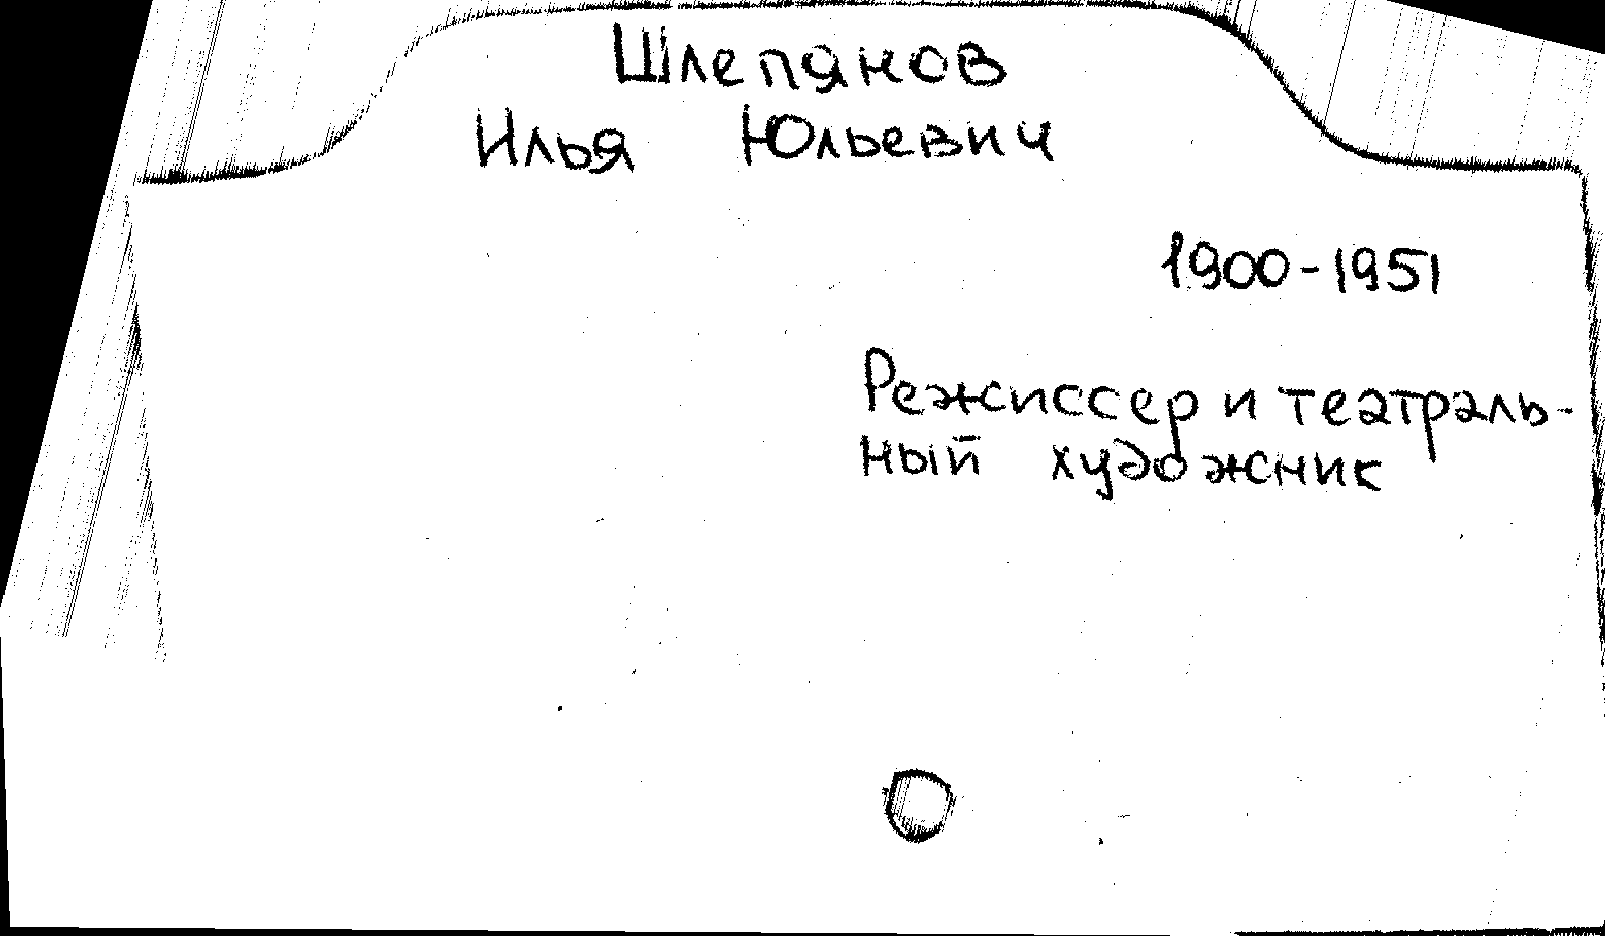 Шлепянов
Илья Юльевич
1900-1951
Режиссер и театраль-
ный художник